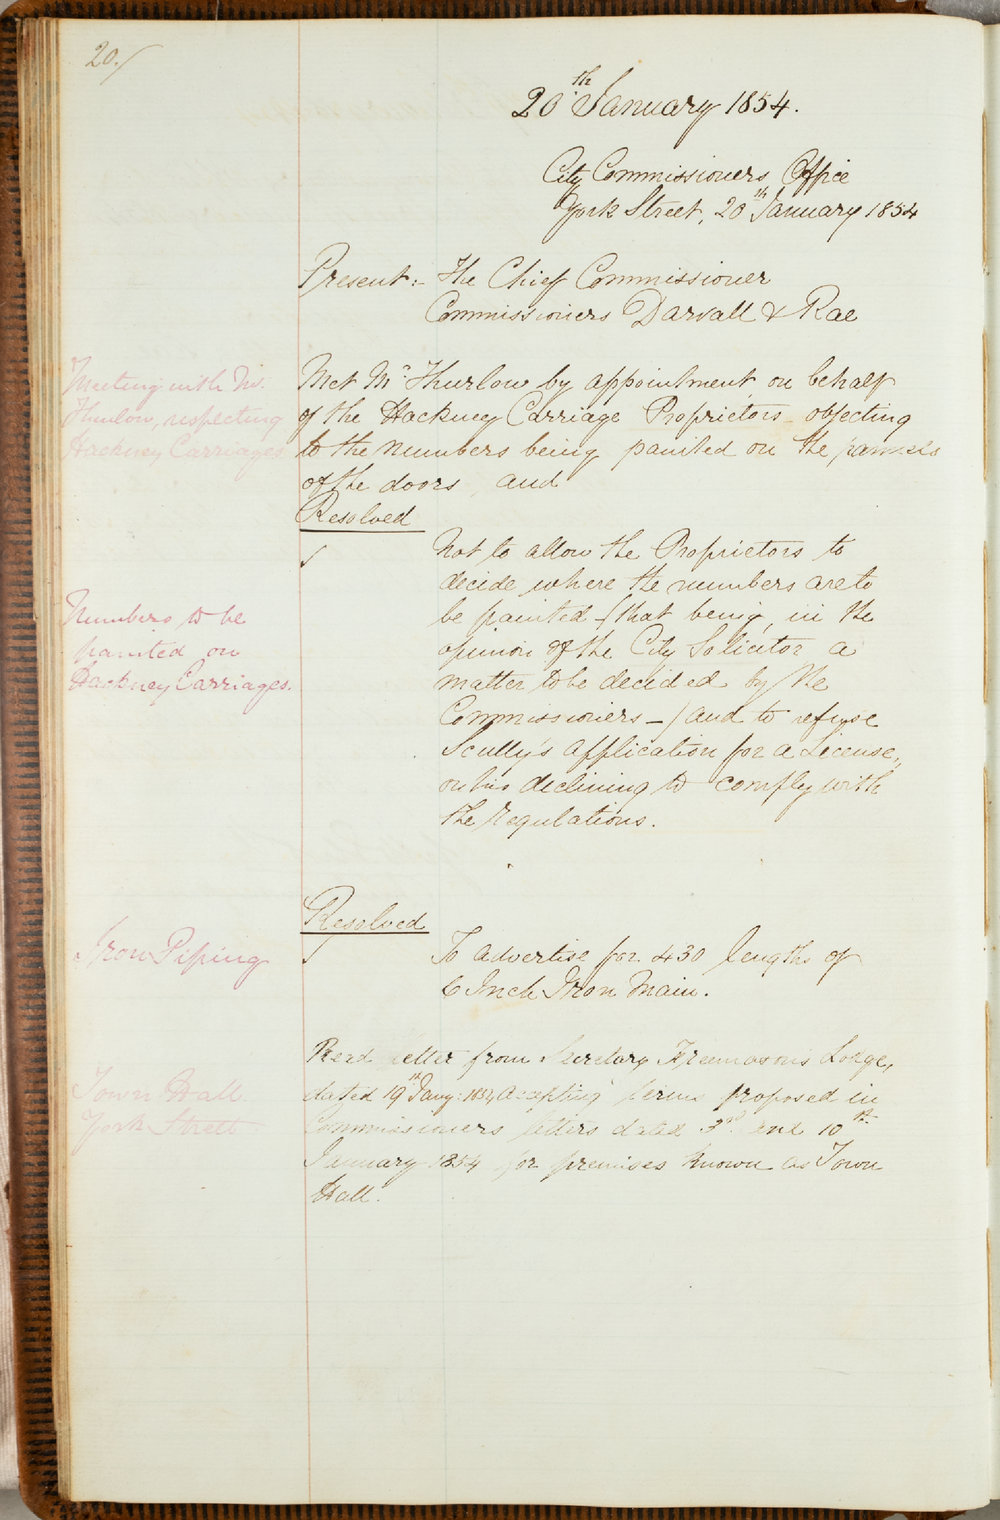 20./
20th January 1854.
City Commissioners Office
York Street, 20th January 1854
Present:- The Chief Commissioner
Commissioners Darvall & Rae
Meeting with Mr.
Thurlow, respecting
Hackney Carriages
Met Mr. Thurlow by appointment, on behalf
of the Hackney Carriage Proprietors objecting
to the numbers being painted on the pannels
of the doors and
Resolved
Numbers to be
painted on
Hackney Carriages.
Not to allow the Proprietors to
decide where the numbers are to
be painted - (that being, in the
opinion of the City Solicitor a
matter to be decided by the
Commissioners -) and to refuse
Scully's application for a License,
on his declining to comply with
the regulations.
Iron Piping
Resolved
To advertise for 430 lengths of
6 Inch Iron Main.
Town Hall
York Street
Read letter from Secretary Freemasons Lodge,
dated 19th Jany: 1854, accepting terms proposed in
Commissioners letters dated 3rd and 10th
January 1854 for premises known as Town
Hall.